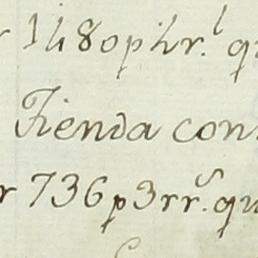 r 1480p 4r.l qu
Tienda con
r 736p 3rr.s qu